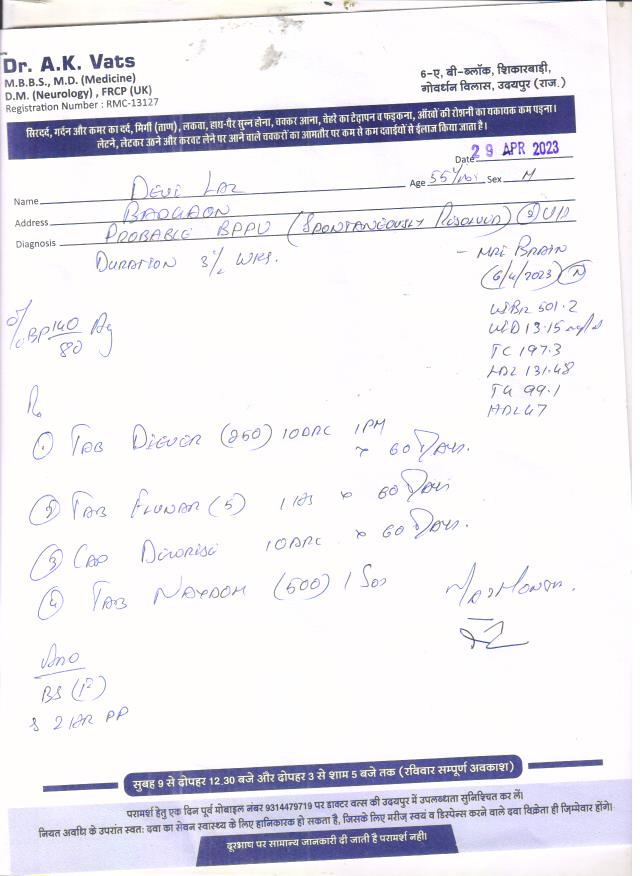 Dr. A.K. Vats
M.B.B.S., M.D. (Medicine)
D.M. (Neurology) , FRCP (UK)
Registration Number : RMC-13127
6-ए, बी-ब्लॉक, शिकारबाड़ी,
गोवर्धन विलास, उदयपुर (राज.)
सिरदर्द, गर्दन और कमर का दर्द, मिर्गी (ताण), लकवा, हाथ-पैर सुन्न होना, चक्कर आना, चेहरे का टेढ़ापन व फड़कना, आँखों की रोशनी का यकायक कम पड़ना।
लेटने, लेटकर उठने और करवट लेने पर आने वाले चक्करों का आमतौर पर कम से कम दवाईयों से ईलाज किया जाता है।
Date 29 APR 2023
Name DEVI LAL Age 55 Sex M
Address BADGAON
Diagnosis PROBABLE BPPV (SPONTANEOUSLY RESOLVED)
DURATION 3½ WKS.
- MRI BRAIN
(6/4/2023) N
VitB12 501.2
VitD 13.15
TC 197.3
LDL 131.48
TG 99.1
HDL 47
BP 140/80
Rx
① TAB (250) 1 PM x 60 DAYS.
② TAB FLUNAR (5) 1 HS x 60 DAYS
③ CAP x 60 DAYS.
④ TAB NAXDOM (500) 1 SOS
BS (F)
& 2 HR PP
सुबह 9 से दोपहर 12.30 बजे और दोपहर 3 से शाम 5 बजे तक (रविवार सम्पूर्ण अवकाश)
परामर्श हेतु एक दिन पूर्व मोबाइल नंबर 9314479719 पर डाक्टर वत्स की उदयपुर में उपलब्धता सुनिश्चित कर लें।
नियत अवधि के उपरांत स्वतः दवा का सेवन स्वास्थ्य के लिए हानिकारक हो सकता है, जिसके लिए मरीज़ स्वयं व डिस्पेन्स करने वाले दवा विक्रेता ही ज़िम्मेवार होंगे।
दूरभाष पर सामान्य जानकारी दी जाती है परामर्श नही।